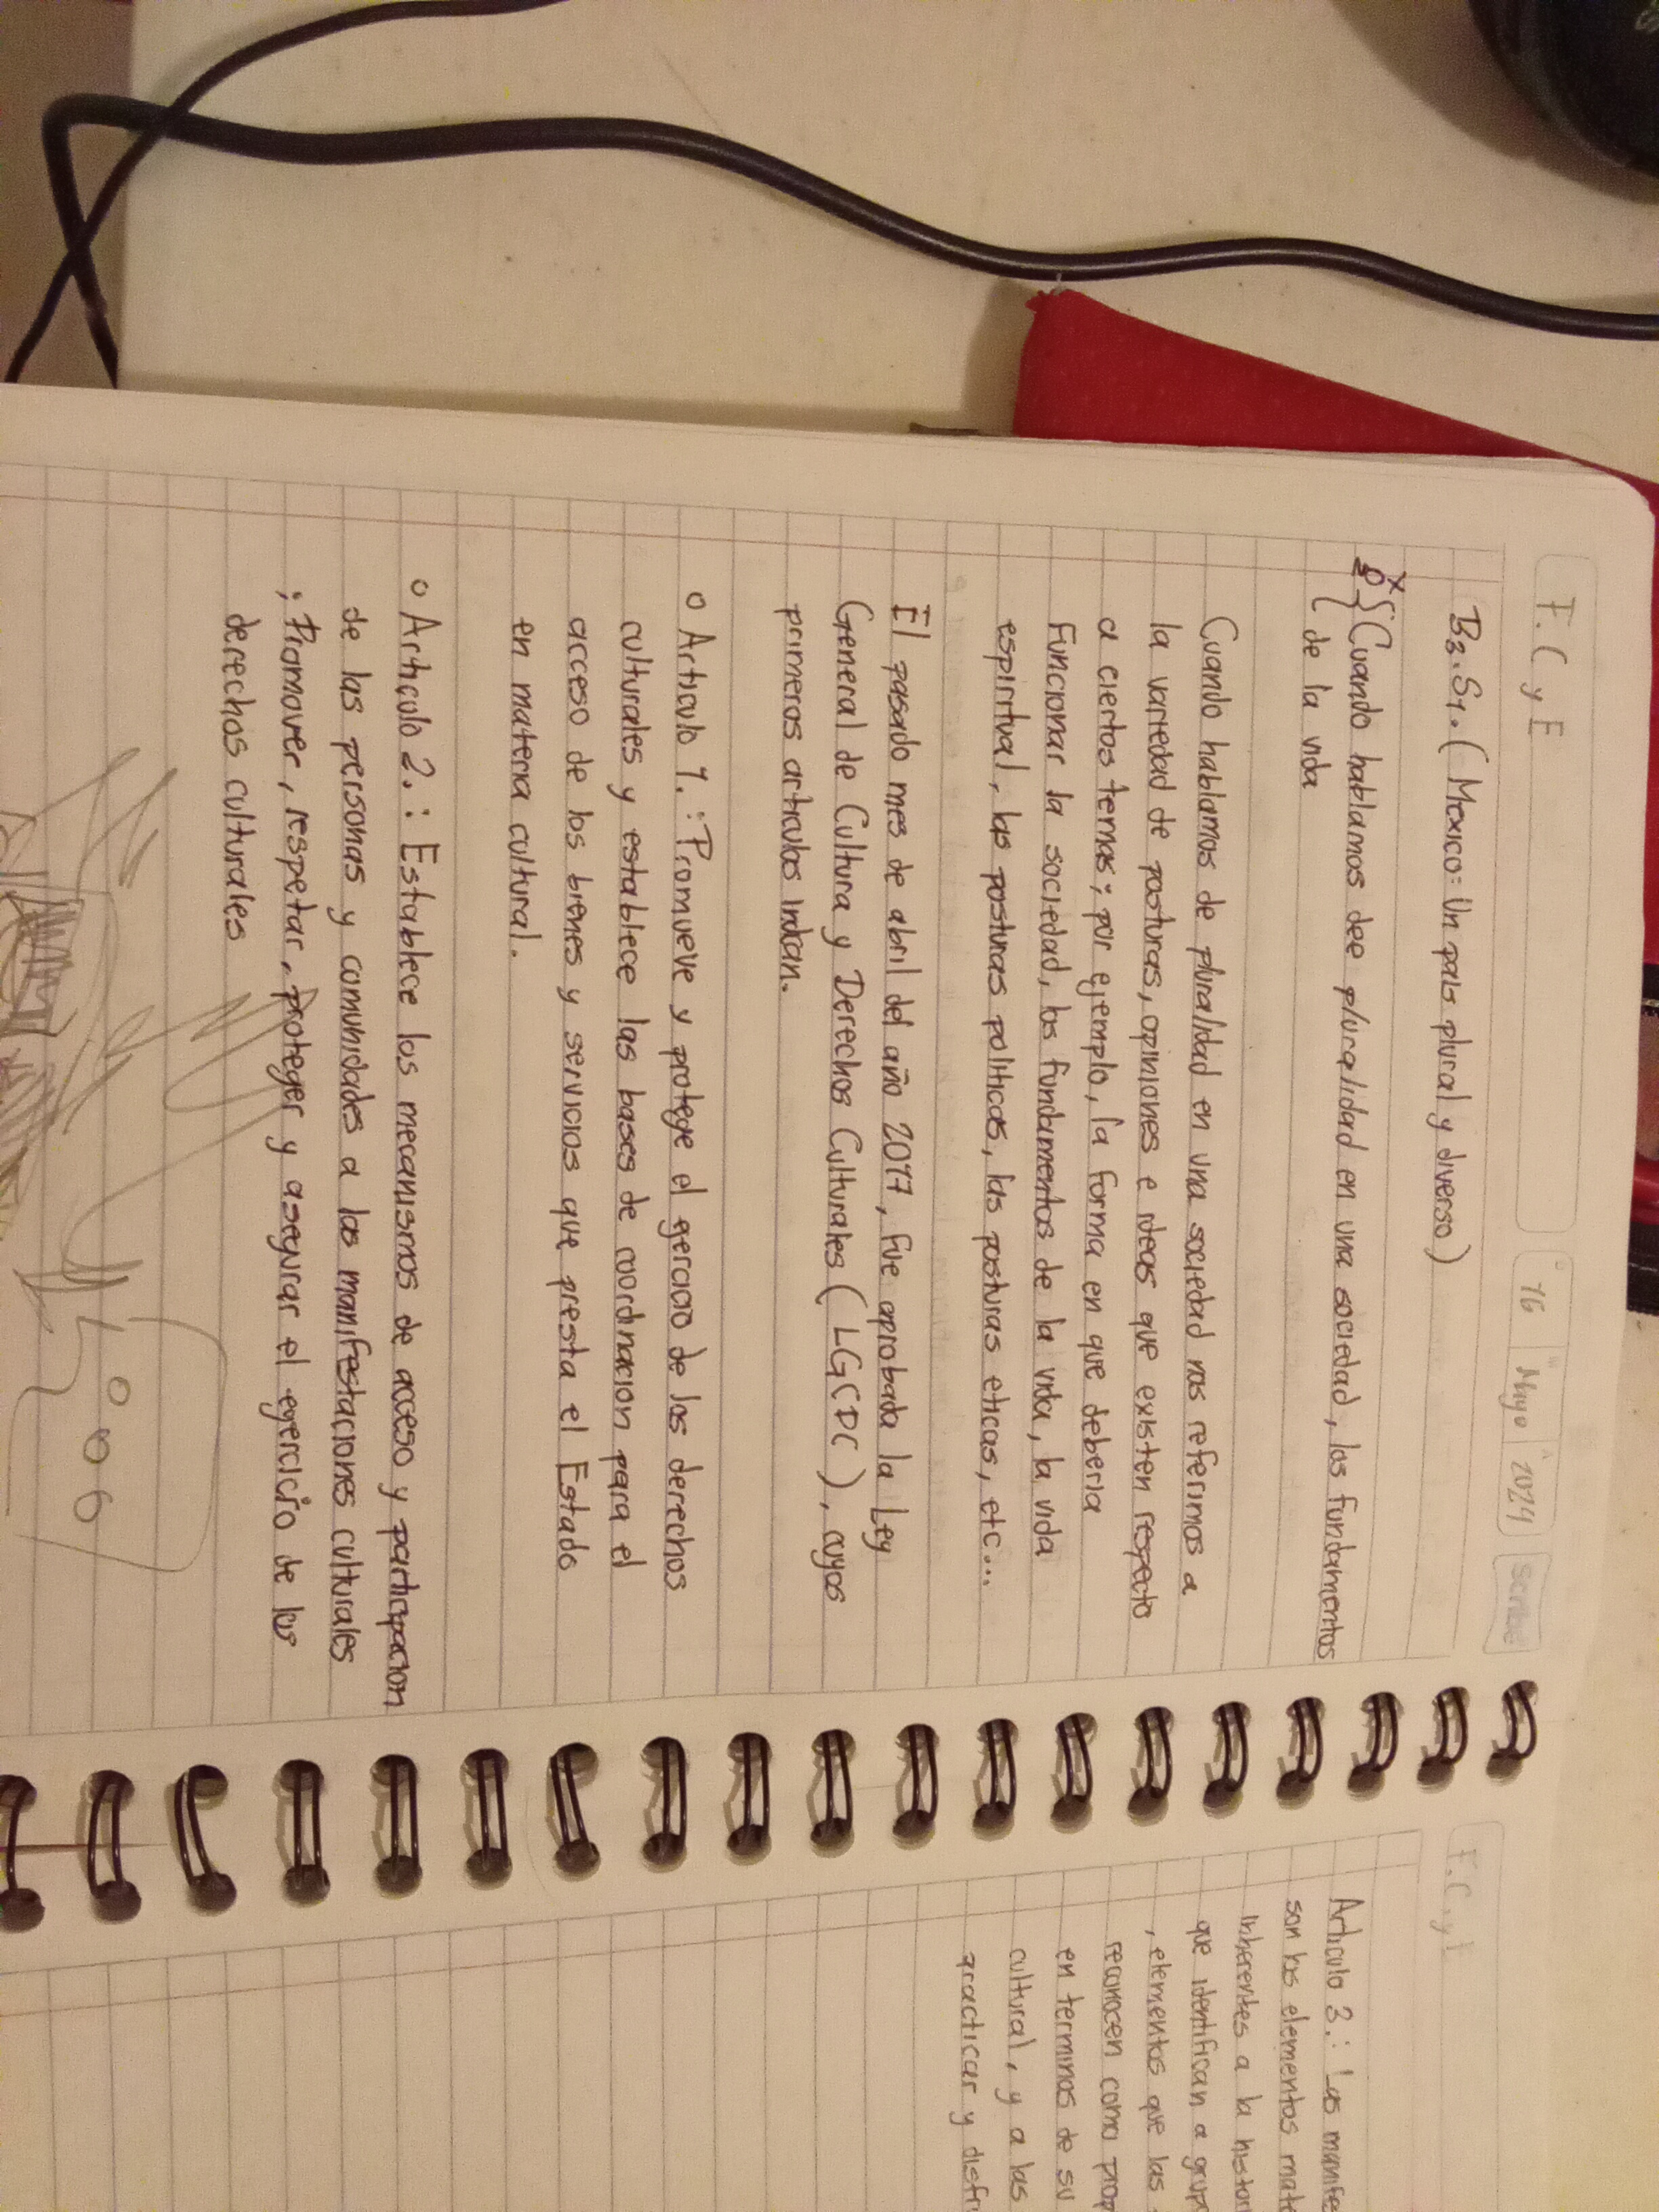 F.C y E
16 Mayo 2024 Scribe
B3.S1.(Mexico: Un pais plural y diverso)
Cuando hablamos dee pluralidad en una sociedad, los fundamentos
de la vida
Cuando hablamos de pluralidad en una sociedad nos referimos a
la variedad de posturas, opiniones e ideas que existen respecto
a ciertos temas; por ejemplo, la forma en que deberia
funcionar la sociedad, los fundamentos de la vida, la vida
espiritual, las posturas politicas, las posturas eticas, etc...
El pasado mes de abril del año 2017, fue aprobada la Ley
General de Cultura y Derechos Culturales (LGCDC), cuyos
primeros articulos indcan.
o Articulo 1.: Promueve y protege el gercicio de los derechos
culturales y establece las bases de coordinacion para el
acceso de los bienes y servicios que presta el Estado
en materia cultural.
o Articulo 2.: Establece los mecanismos de acceso y participacion
de las personas y comunidades a las manifestaciones culturales
; Promover, respetar, proteger y asegurar el egercicio de los
derechos culturales
F.C. y E
Articulo 3.: Las manife
son los elementos mate
inherentes a la histor
que identifican a grup
, elementos que las
reconocen como prop
en terminos de su
cultural, y a las
practicar y disfr